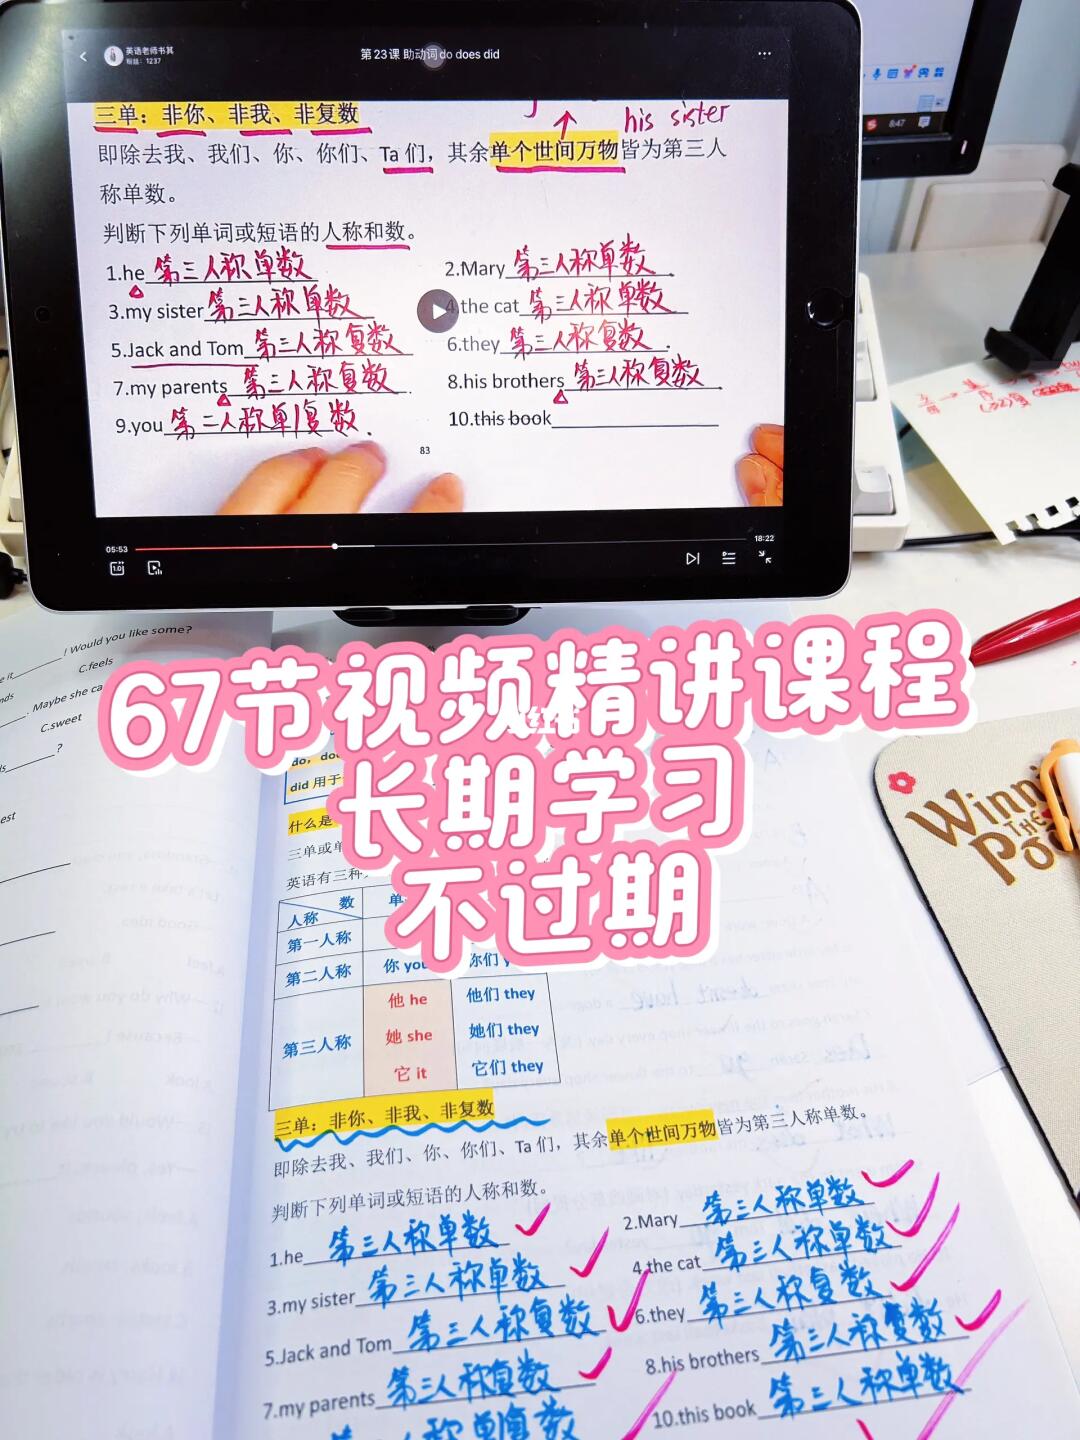 英语老师书其
粉丝：1237
第23课 助动词do does did
三单：非你、非我、非复数
his sister
即除去我、我们、你、你们、Ta 们，其余单个世间万物皆为第三人
称单数。
判断下列单词或短语的人称和数。
1.he 第三人称单数
2.Mary 第三人称单数
3.my sister 第三人称单数
4.the cat 第三人称单数
5.Jack and Tom 第三人称复数
6.they 第三人称复数
7.my parents 第三人称复数
8.his brothers 第三人称复数
9.you 第二人称单/复数
10.this book
83
05:53
18:22
1.0
8:47
! Would you like some?
C.feels
. Maybe she ca
C.sweet
?
67节视频精讲课程
长期学习
不过期
did 用于
什么是
三单或单
英语有三种
人称 数
第一人称
第二人称 你 you 你们
第三人称
他 he 他们 they
她 she 她们 they
它 it 它们 they
三单：非你、非我、非复数
即除去我、我们、你、你们、Ta 们，其余单个世间万物皆为第三人称单数。
判断下列单词或短语的人称和数。
1.he 第三人称单数
2.Mary 第三人称单数
3.my sister 第三人称单数
4.the cat 第三人称单数
5.Jack and Tom 第三人称复数
6.they 第三人称复数
7.my parents 第三人称复数
8.his brothers 第三人称复数
10.this book 第三人称单数
Winn
THE
Po